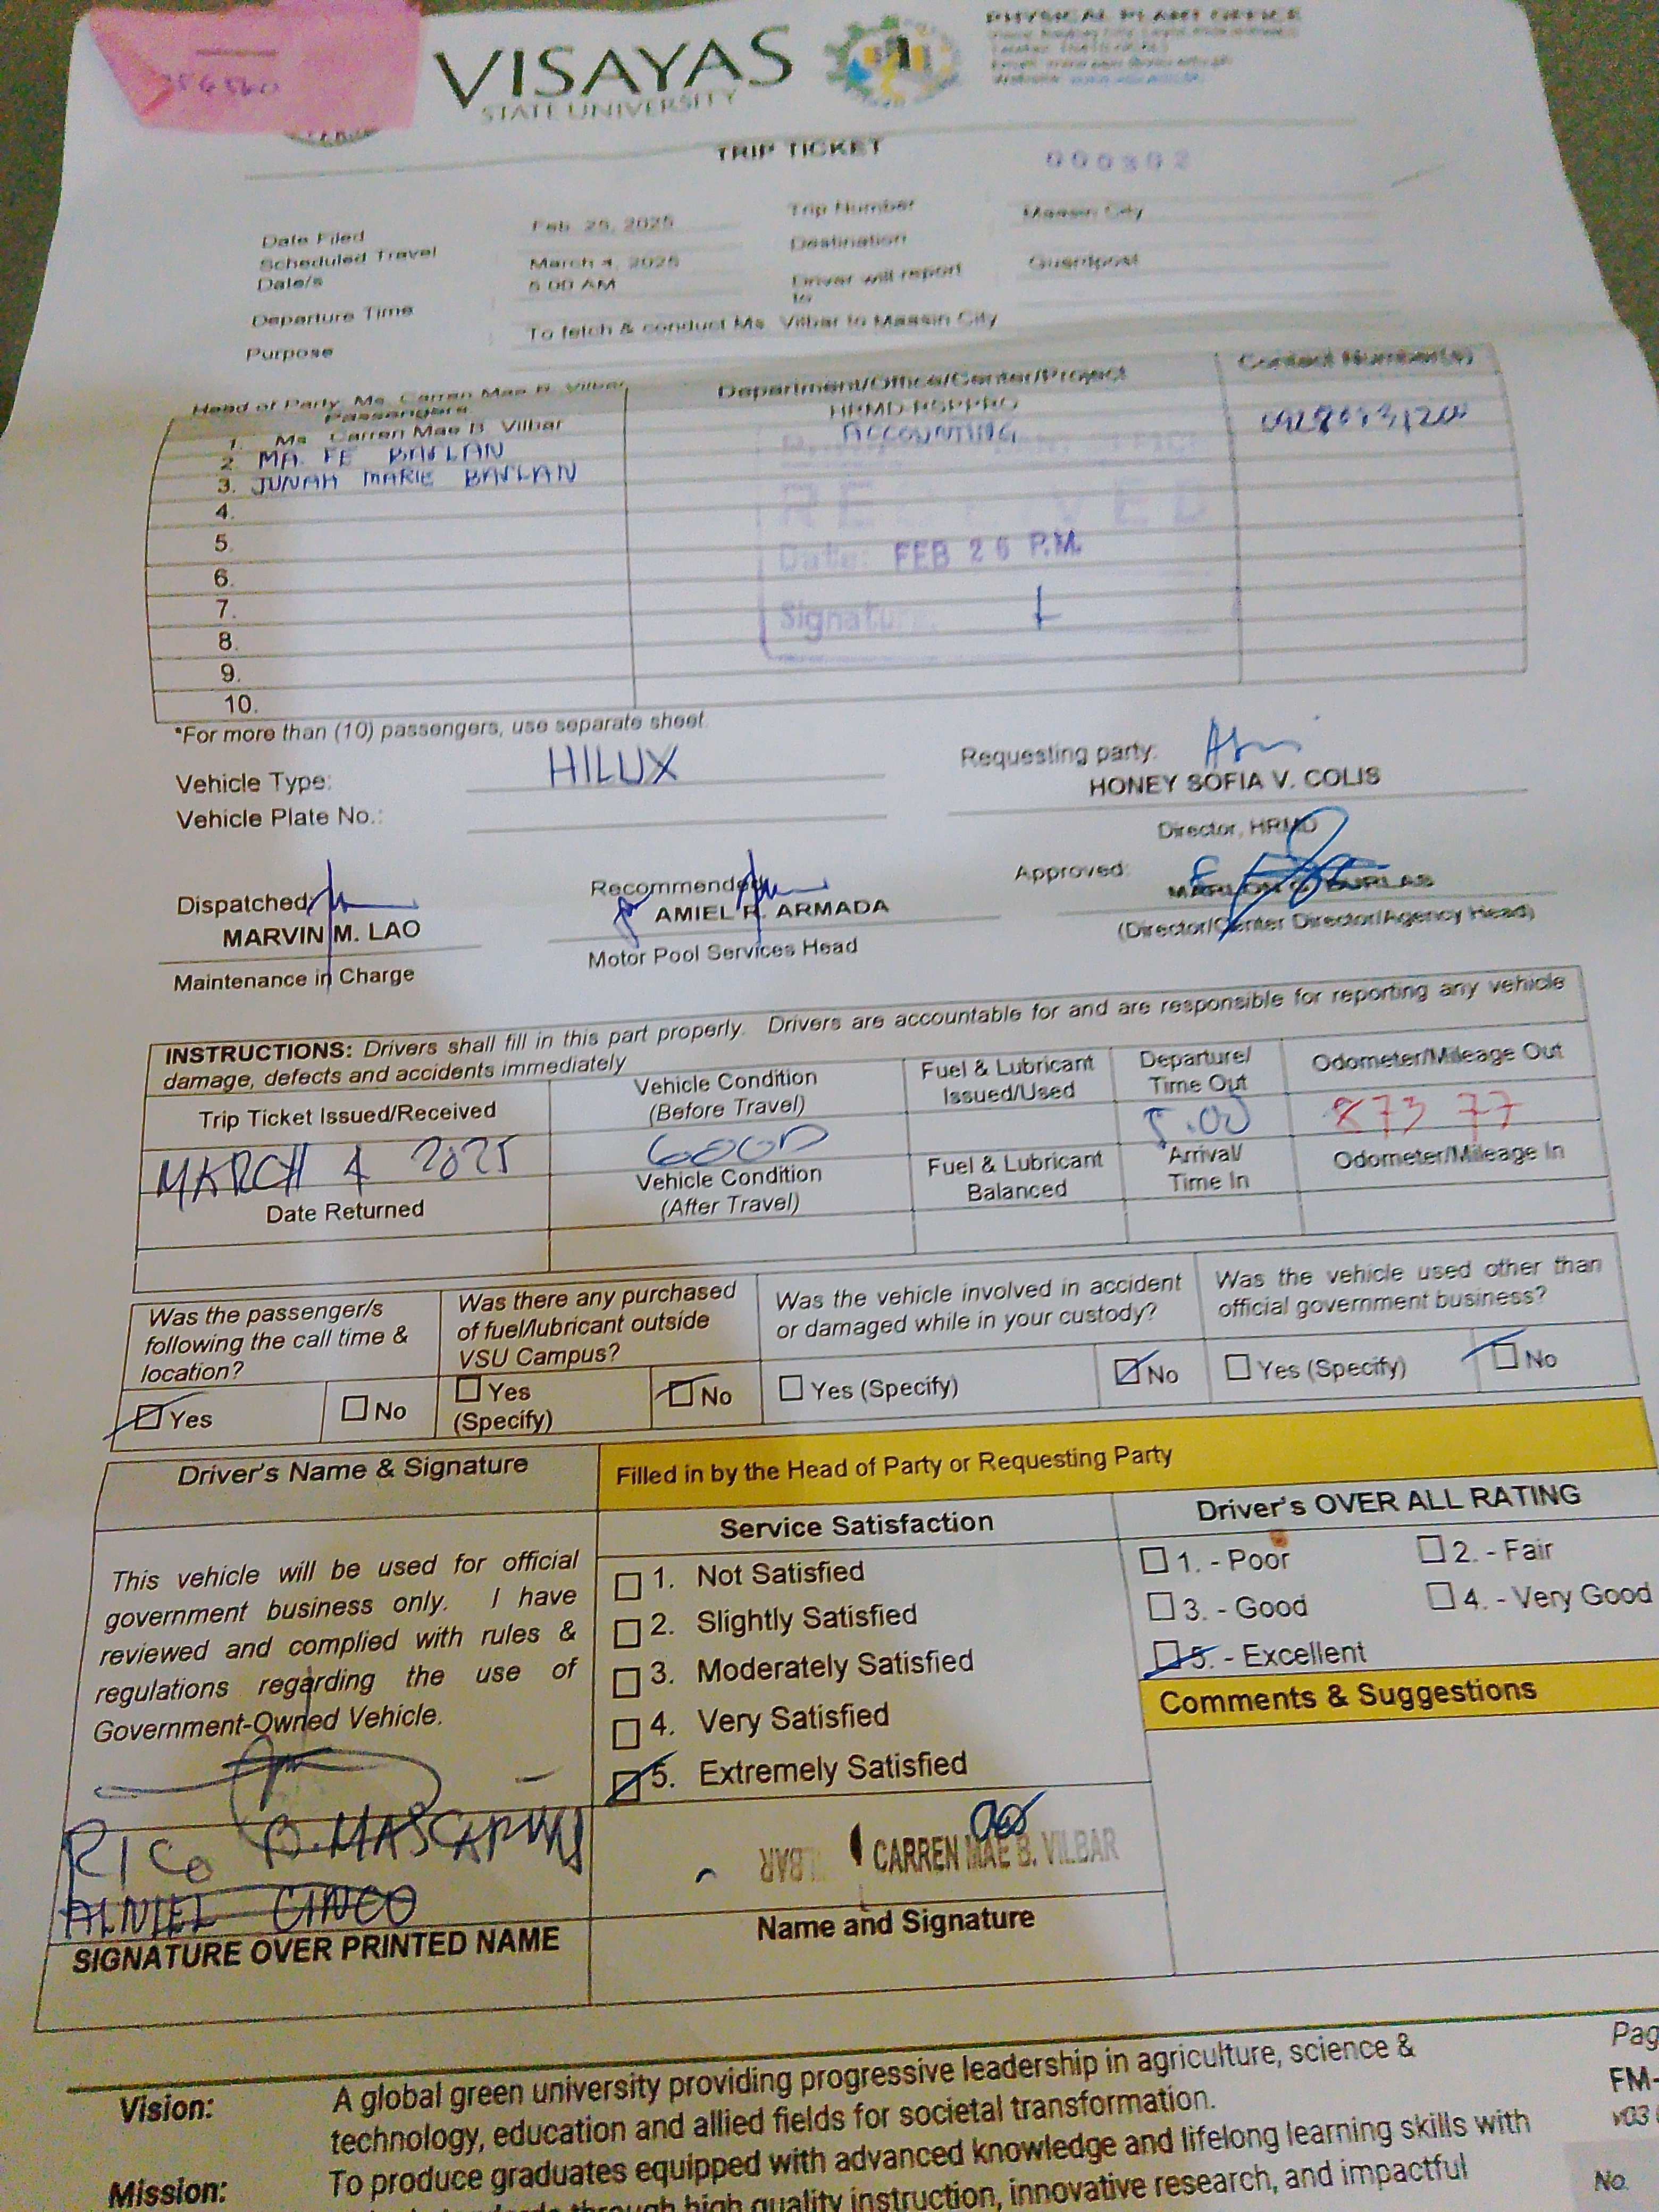 VISAYAS
STATE UNIVERSITY
PHYSICAL PLANT OFFICE
TRIP TICKET
Date Filed Feb. 25, 2025 Trip Number
Scheduled Travel Date/s March 4, 2025 Destination Maasin City
Departure Time 5:00 AM Driver will report to Guardpost
Purpose To fetch & conduct Ms. Vilbar to Maasin City
Head of Party: Ms. Carren Mae B. Vilbar
Passengers Department/Office/Center/Project Contact Number(s)
1. Ms. Carren Mae B. Vilbar HRMD-RSPPRO
2. MA. FE ACCOUNTING
3. JUNAH MARIE
4.
5.
6.
7.
8.
9.
10.
RECEIVED
Date: FEB 26 P.M.
Signature
*For more than (10) passengers, use separate sheet.
Vehicle Type: HILUX
Vehicle Plate No.:
Requesting party:
HONEY SOFIA V. COLIS
Director, HRMD
Dispatched:
MARVIN M. LAO
Maintenance in Charge
Recommended:
AMIEL R. ARMADA
Motor Pool Services Head
Approved:
MARLON G. BURLAS
(Director/Center Director/Agency Head)
INSTRUCTIONS: Drivers shall fill in this part properly. Drivers are accountable for and are responsible for reporting any vehicle
damage, defects and accidents immediately
Trip Ticket Issued/Received
Vehicle Condition
(Before Travel)
Fuel & Lubricant
Issued/Used
Departure/
Time Out
Odometer/Mileage Out
MARCH 4 2025 GOOD 5:00 87377
Date Returned
Vehicle Condition
(After Travel)
Fuel & Lubricant
Balanced
Arrival/
Time In
Odometer/Mileage In
Was the passenger/s
following the call time &
location?
Yes No
Was there any purchased
of fuel/lubricant outside
VSU Campus?
Yes
(Specify)
No
Was the vehicle involved in accident
or damaged while in your custody?
Yes (Specify) No
Was the vehicle used other than
official government business?
Yes (Specify) No
Driver's Name & Signature
This vehicle will be used for official
government business only. I have
reviewed and complied with rules &
regulations regarding the use of
Government-Owned Vehicle.
RICO
ALNIEL CINCO
SIGNATURE OVER PRINTED NAME
Filled in by the Head of Party or Requesting Party
Service Satisfaction
1. Not Satisfied
2. Slightly Satisfied
3. Moderately Satisfied
4. Very Satisfied
5. Extremely Satisfied
CARREN MAE B. VILBAR
Name and Signature
Driver's OVER ALL RATING
1. - Poor 2. - Fair
3. - Good 4. - Very Good
5. - Excellent
Comments & Suggestions
Vision: A global green university providing progressive leadership in agriculture, science &
technology, education and allied fields for societal transformation.
Mission: To produce graduates equipped with advanced knowledge and lifelong learning skills with
through high quality instruction, innovative research, and impactful
Pag
FM-
v03
No.